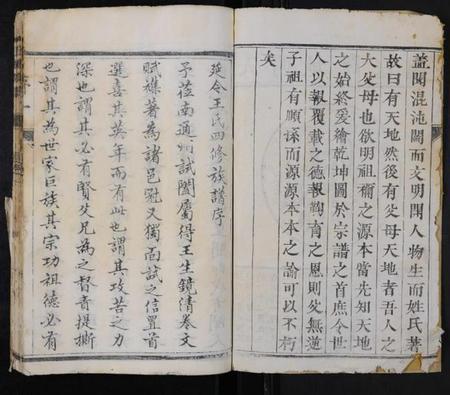 蓋聞混沌闢而文明開人物生而姓氏著
故曰有天地然後有父母天地者吾人之
大父母也欲明祖禰之源本當先知天地
之始終爰繪乾坤圖於宗譜之首庶令世
人以報覆載之德報鞠育之恩則父無逆
子祖有順孫而源源本本之論可以不朽
矣
延令王氏四修族譜序
予蒞南通州試闈屬得王生鏡清卷文
賦襍著為諸邑冠又獨面試之信置首
選喜其英年而有此也謂其攻苦之力
深也謂其必有賢父兄為之督者提撕
也謂其為世家巨族其宗功祖德必有